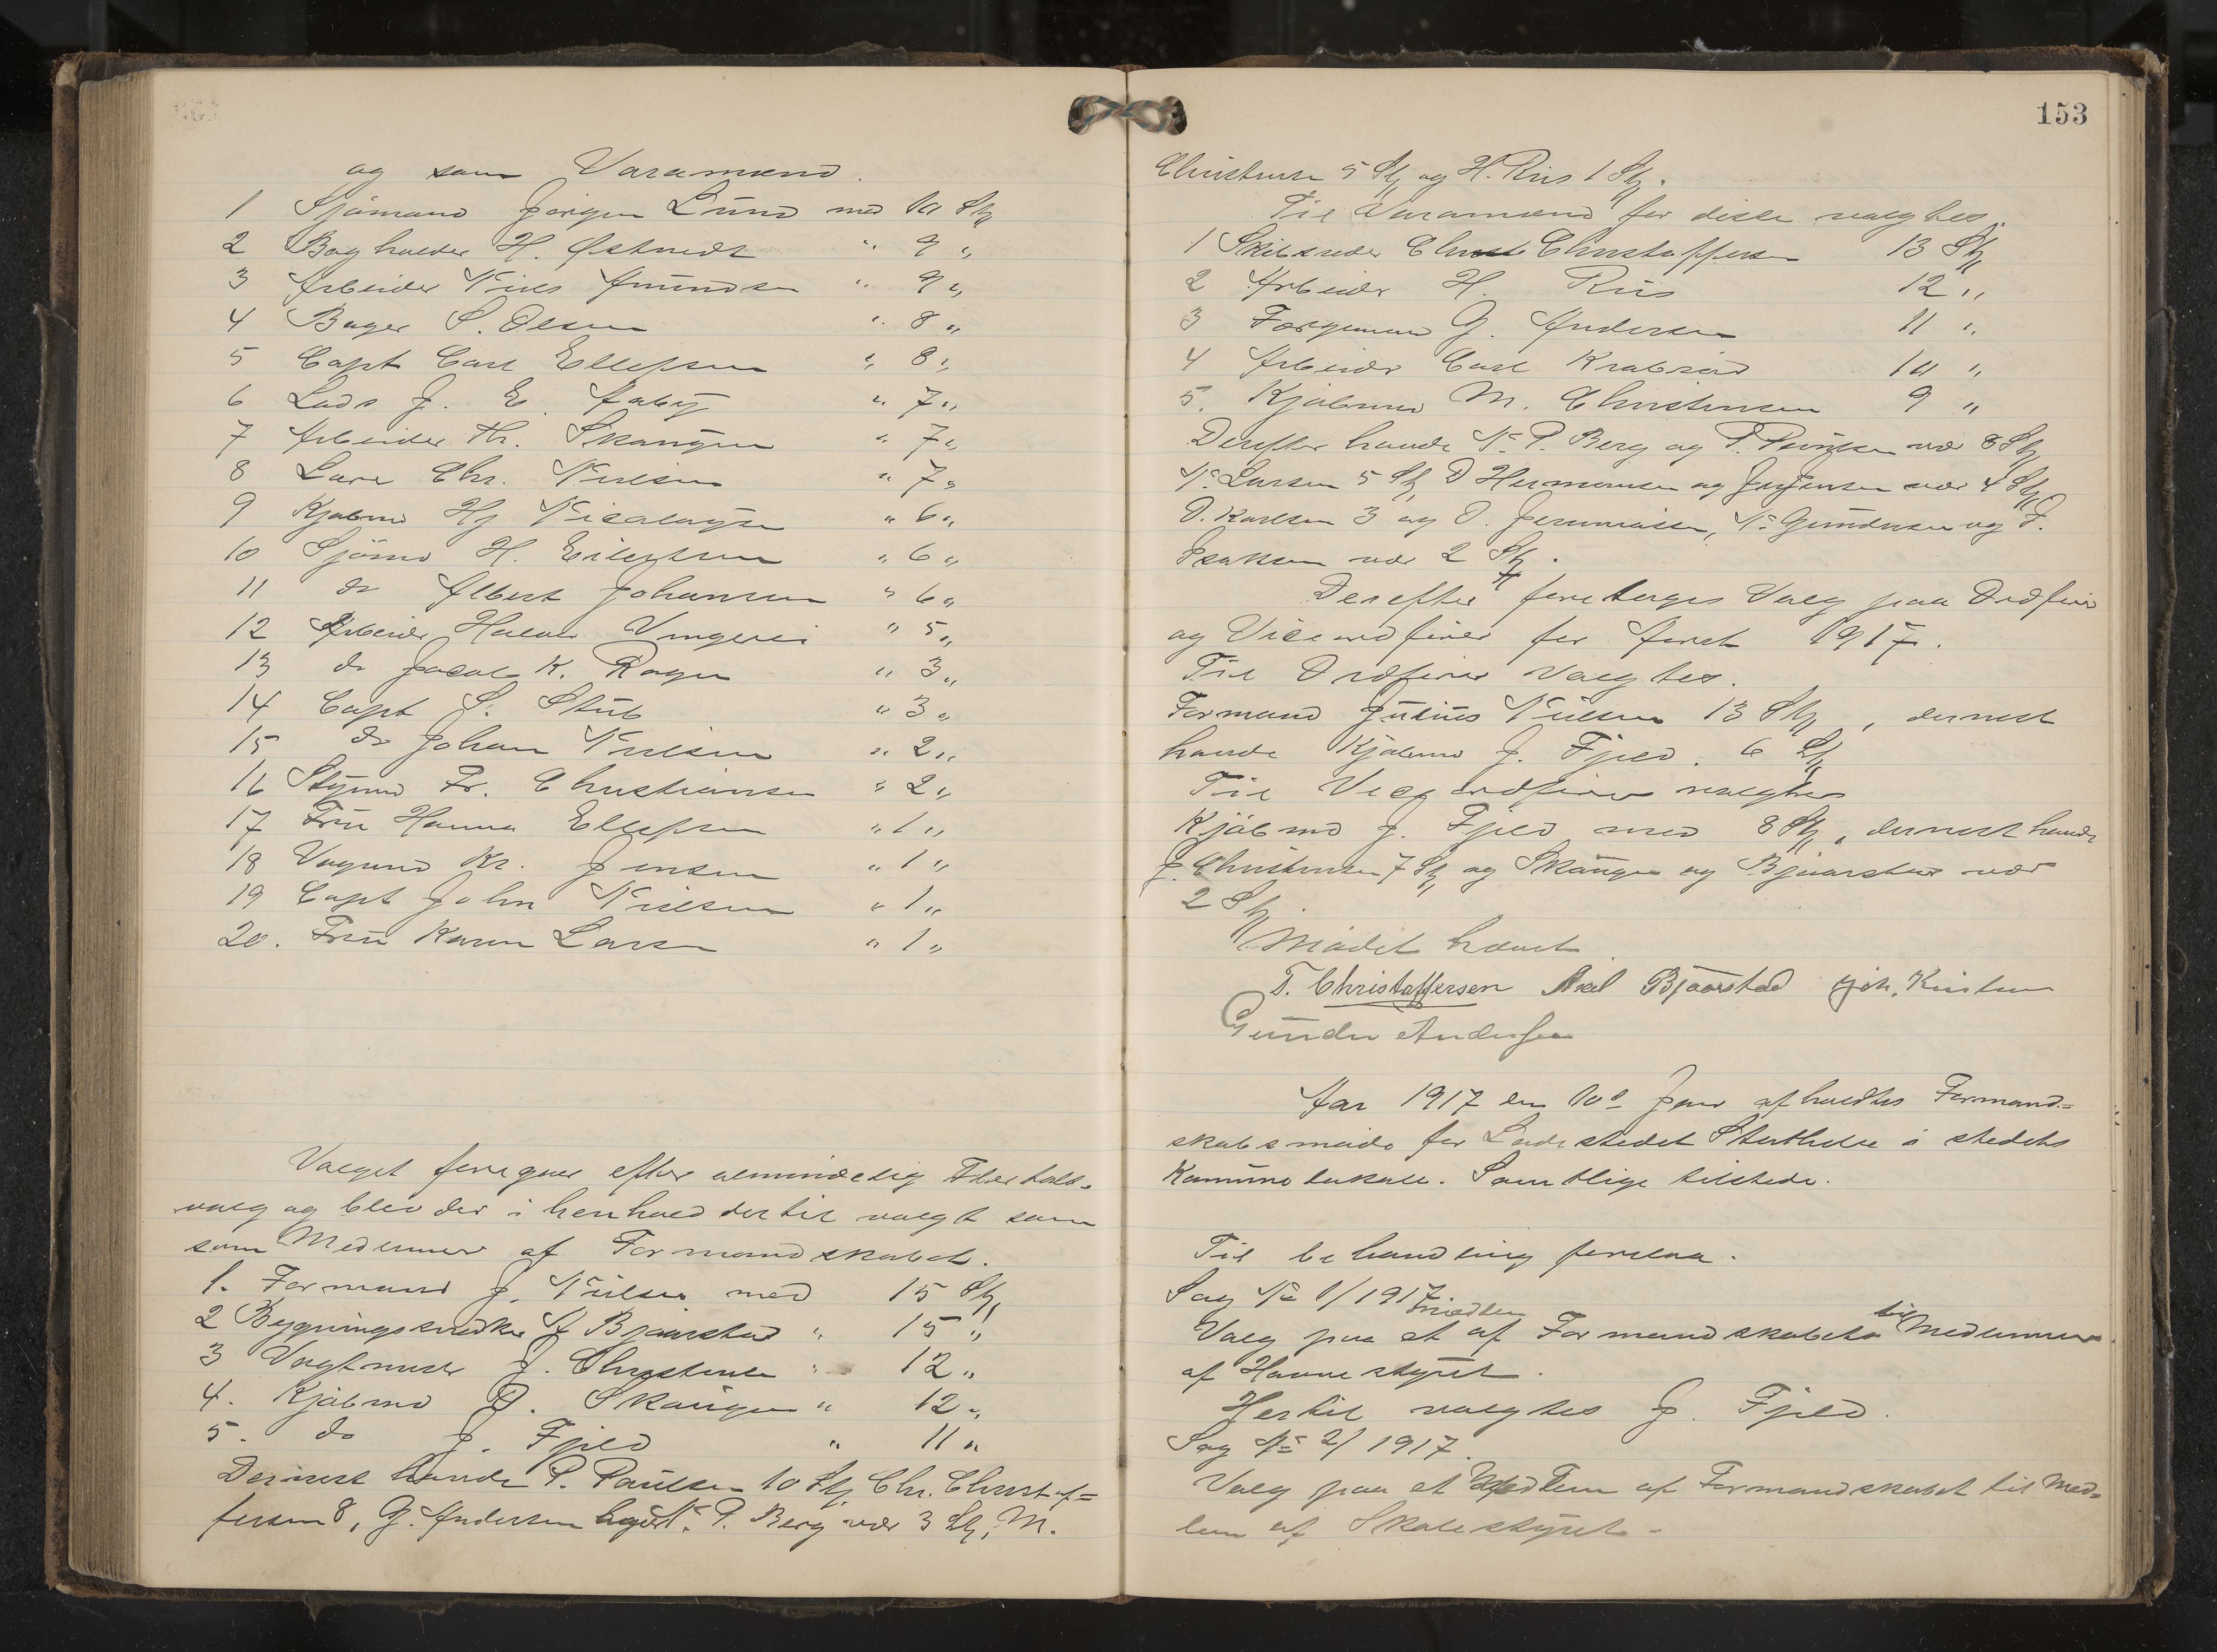 og som Varamænd.
1 Sjømand Jørgen Lund med 10 St
2 Boghalder H. Østvedt " 9 "
3 Arbeider Nils Amundsen " 9 "
4 Bager S. Olsen " 8 "
5 Capt Carl Ellefsen " 8 "
6 Lods J. E. Aaby " 7 "
7 Arbeider Th. Skaugen " 7 "
8 Chr. Nielsen " 7 "
9 Kjøbmd Hj " 6 "
10 Sjømd H. Eilertsen " 6 "
11 do Albert Johansen " 6 "
12 Arbeider Halvor " 5 "
13 do Jacob K. " 3 "
14 Capt S. Stub " 3 "
15 do Johan Nielsen " 2 "
16 Styrmd Fr. Christiansen " 2 "
17 Fru Hanna Ellefsen " 1 "
18 Vognmd Kr. Jensen " 1 "
19 Capt John Nielsen " 1 "
20. Fru Karen Larsen " 1 "
Valget foregaar efter almindelig Flertals-
valg og blev der i henhold dertil valgt som
som Medlemmer af Formandskabet.
1. Formand J. Nielsen med 15 St
2 Bygningssnedker A Bjaarstad " 15 "
3 Vagtmester J. Christensen " 12 "
4. Kjøbmd D. Skaugen " 12 "
5. do J. Fjeld " 11 "
Dernest havde P. Paulsen 10 St, Chr. Christof=
fersen 8, G. Andersen N. P. Berg vær 3 St, M.
153
Christensen 5 St og H. Riis 1 St.
Til Varamænd for disse valgtes.
1 Skibsreder Christ Christoffersen 13 St
2 Arbeider H. Riis 12 "
3 Færgemand G. Andersen 11 "
4 Arbeider Carl Krabrød 10 "
5. Kjøbmd M. Christensen 9 "
Derefter havde N. P. Berg og P. Paulsen vær 8 St
N. Larsen 5 St, D Hermansen og Jørgensen vær 4 St,
O. Karlsen 3 og O. Jeremiassen, N. Gundersen og J.
Isaksen vær 2 St.
Derefter foretoges Valg paa Ordfører
og Viceordfører for Aaret 1917.
Til Ordfører valgtes.
Formand Julius Nielsen 13 St, dernest
havde Kjøbmd J. Fjeld. 6 St
Til Viceordfører valgtes
Kjøbmd J. Fjeld med 8 St, dernest havde
J. Christensen 7 St og Skaugen og Bjaarstad vær
2 St.
Mødet hævet.
T. Christoffersen Axel Bjaarstad Joh. Kristensen
Gunder Andersen
Aar 1917 den 10de Janr afholdtes Formand=
skabsmøde for Ladestedet Stathelle i stedets
Kommunelokale. Samtlige tilstede.
Til behandling forelaa.
Sag No 1/1917
Valg paa et medlem af Formandskabets til Medlemmer
af Havnestyret.
Hertil valgtes J. Fjeld.
Sag No 2/1917.
Valg paa et Medlem af Formandskabet til Med=
lem af Skolestyret.